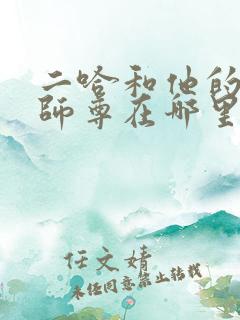 二哈和他的
師尊在哪里
任文婧
未经同意禁止转载